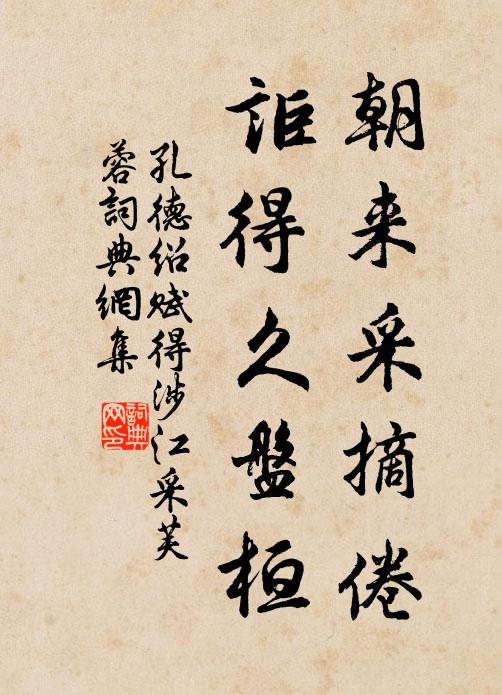 朝来采摘倦
詎得久盤桓
孔德绍赋得涉江采芙
蓉詞典網集
詞典网印